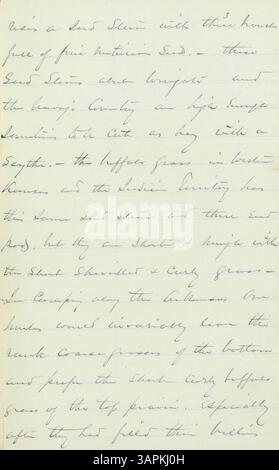 rises a Seed Stem with three 3 branches
full of fine nutricious Seed. - these
Seed Stems about Wingate and
the Navajo Country are high enough
Sometimes to be Cut as hay with a
Scythe. - the buffalo grass in western
Kansas and the Indian Territory has
this Same Seed Stem and these Seed
pods, but they are Short & mingle with
the Short Shrivelled & Curly grass -
In Camping along the Arkansas Our
mules would invariably leave the
rank coarse grasses of the bottom
and prefer the Short Curly buffalo
grass of the top prairie. Especially
after they had filled their bellies
alamy
Image ID: 3APKJ0H
www.alamy.com